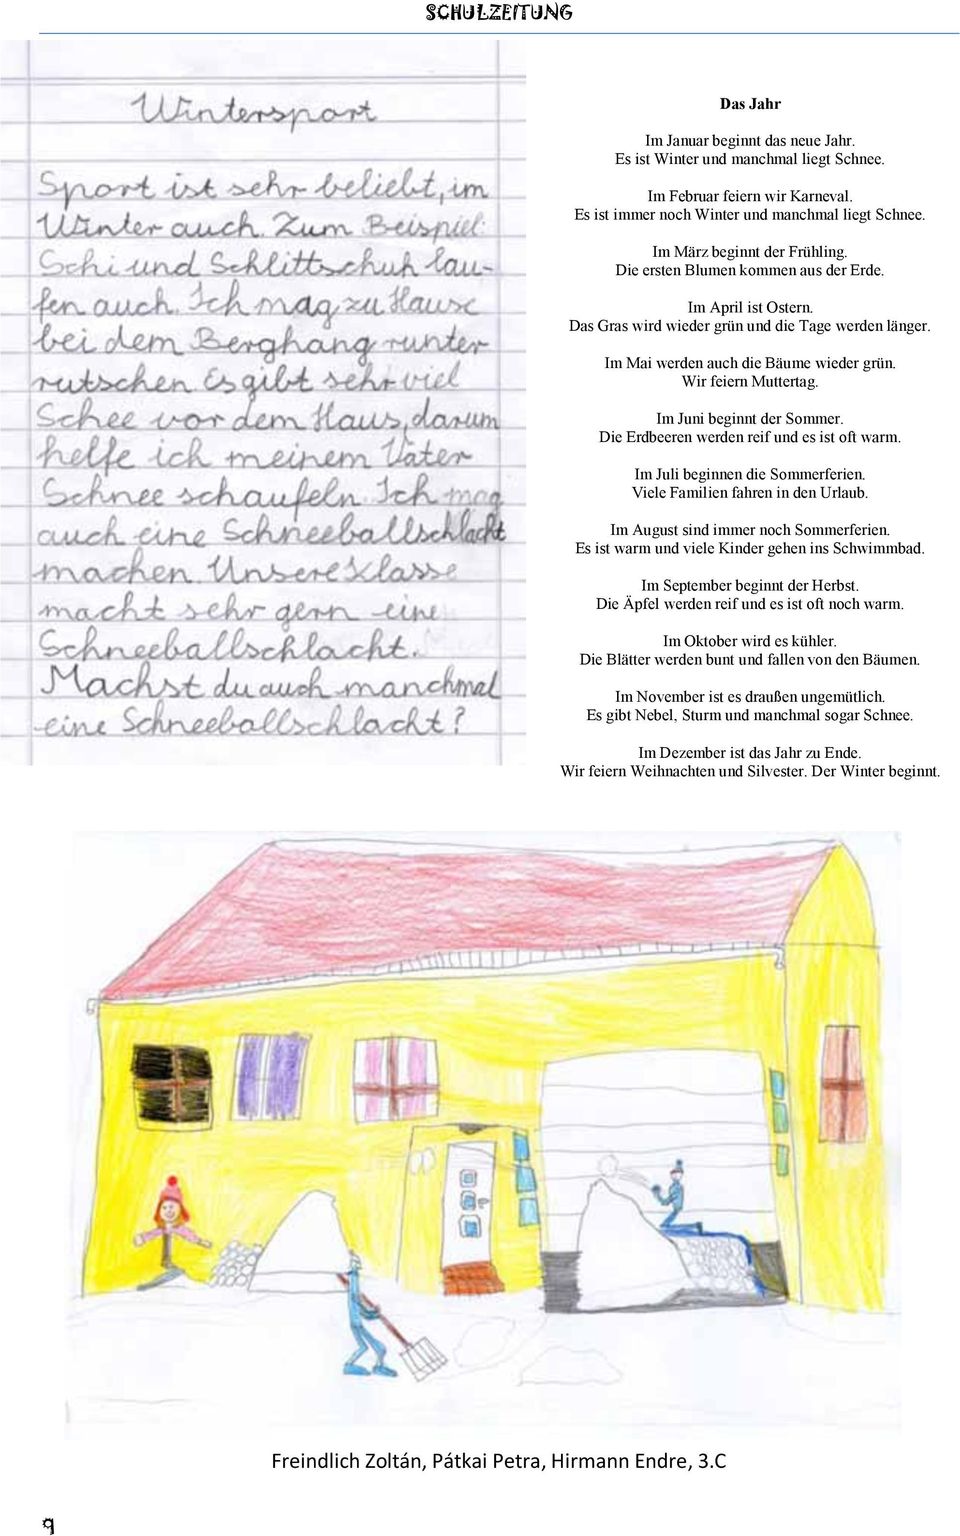 SCHULZEITUNG
Wintersport
Sport ist sehr beliebt, im
Winter auch. Zum Beispiel:
Schi und Schlittschuh lau-
fen auch. Ich mag zu Hause
bei dem Berghang runter
rutschen. Es gibt sehr viel
Schee vor dem Haus, darum
helfe ich meinem Vater
Schnee schaufeln. Ich mag
auch eine Schneeballschlacht
machen. Unsere Klasse
macht sehr gern eine
Schneeballschlacht.
Machst du auch manchmal
eine Schneeballschlacht?
Das Jahr
Im Januar beginnt das neue Jahr.
Es ist Winter und manchmal liegt Schnee.
Im Februar feiern wir Karneval.
Es ist immer noch Winter und manchmal liegt Schnee.
Im März beginnt der Frühling.
Die ersten Blumen kommen aus der Erde.
Im April ist Ostern.
Das Gras wird wieder grün und die Tage werden länger.
Im Mai werden auch die Bäume wieder grün.
Wir feiern Muttertag.
Im Juni beginnt der Sommer.
Die Erdbeeren werden reif und es ist oft warm.
Im Juli beginnen die Sommerferien.
Viele Familien fahren in den Urlaub.
Im August sind immer noch Sommerferien.
Es ist warm und viele Kinder gehen ins Schwimmbad.
Im September beginnt der Herbst.
Die Äpfel werden reif und es ist oft noch warm.
Im Oktober wird es kühler.
Die Blätter werden bunt und fallen von den Bäumen.
Im November ist es draußen ungemütlich.
Es gibt Nebel, Sturm und manchmal sogar Schnee.
Im Dezember ist das Jahr zu Ende.
Wir feiern Weihnachten und Silvester. Der Winter beginnt.
Freindlich Zoltán, Pátkai Petra, Hirmann Endre, 3.C
9